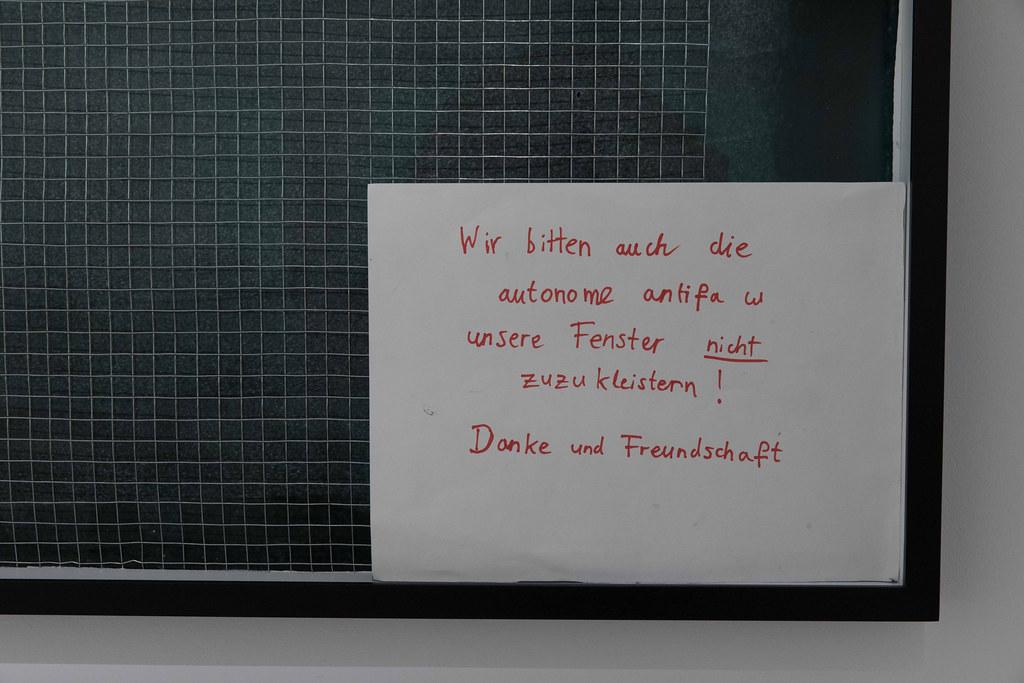 Wir bitten auch die
autonome antifa w
unsere Fenster nicht
zuzukleistern !
Danke und Freundschaft